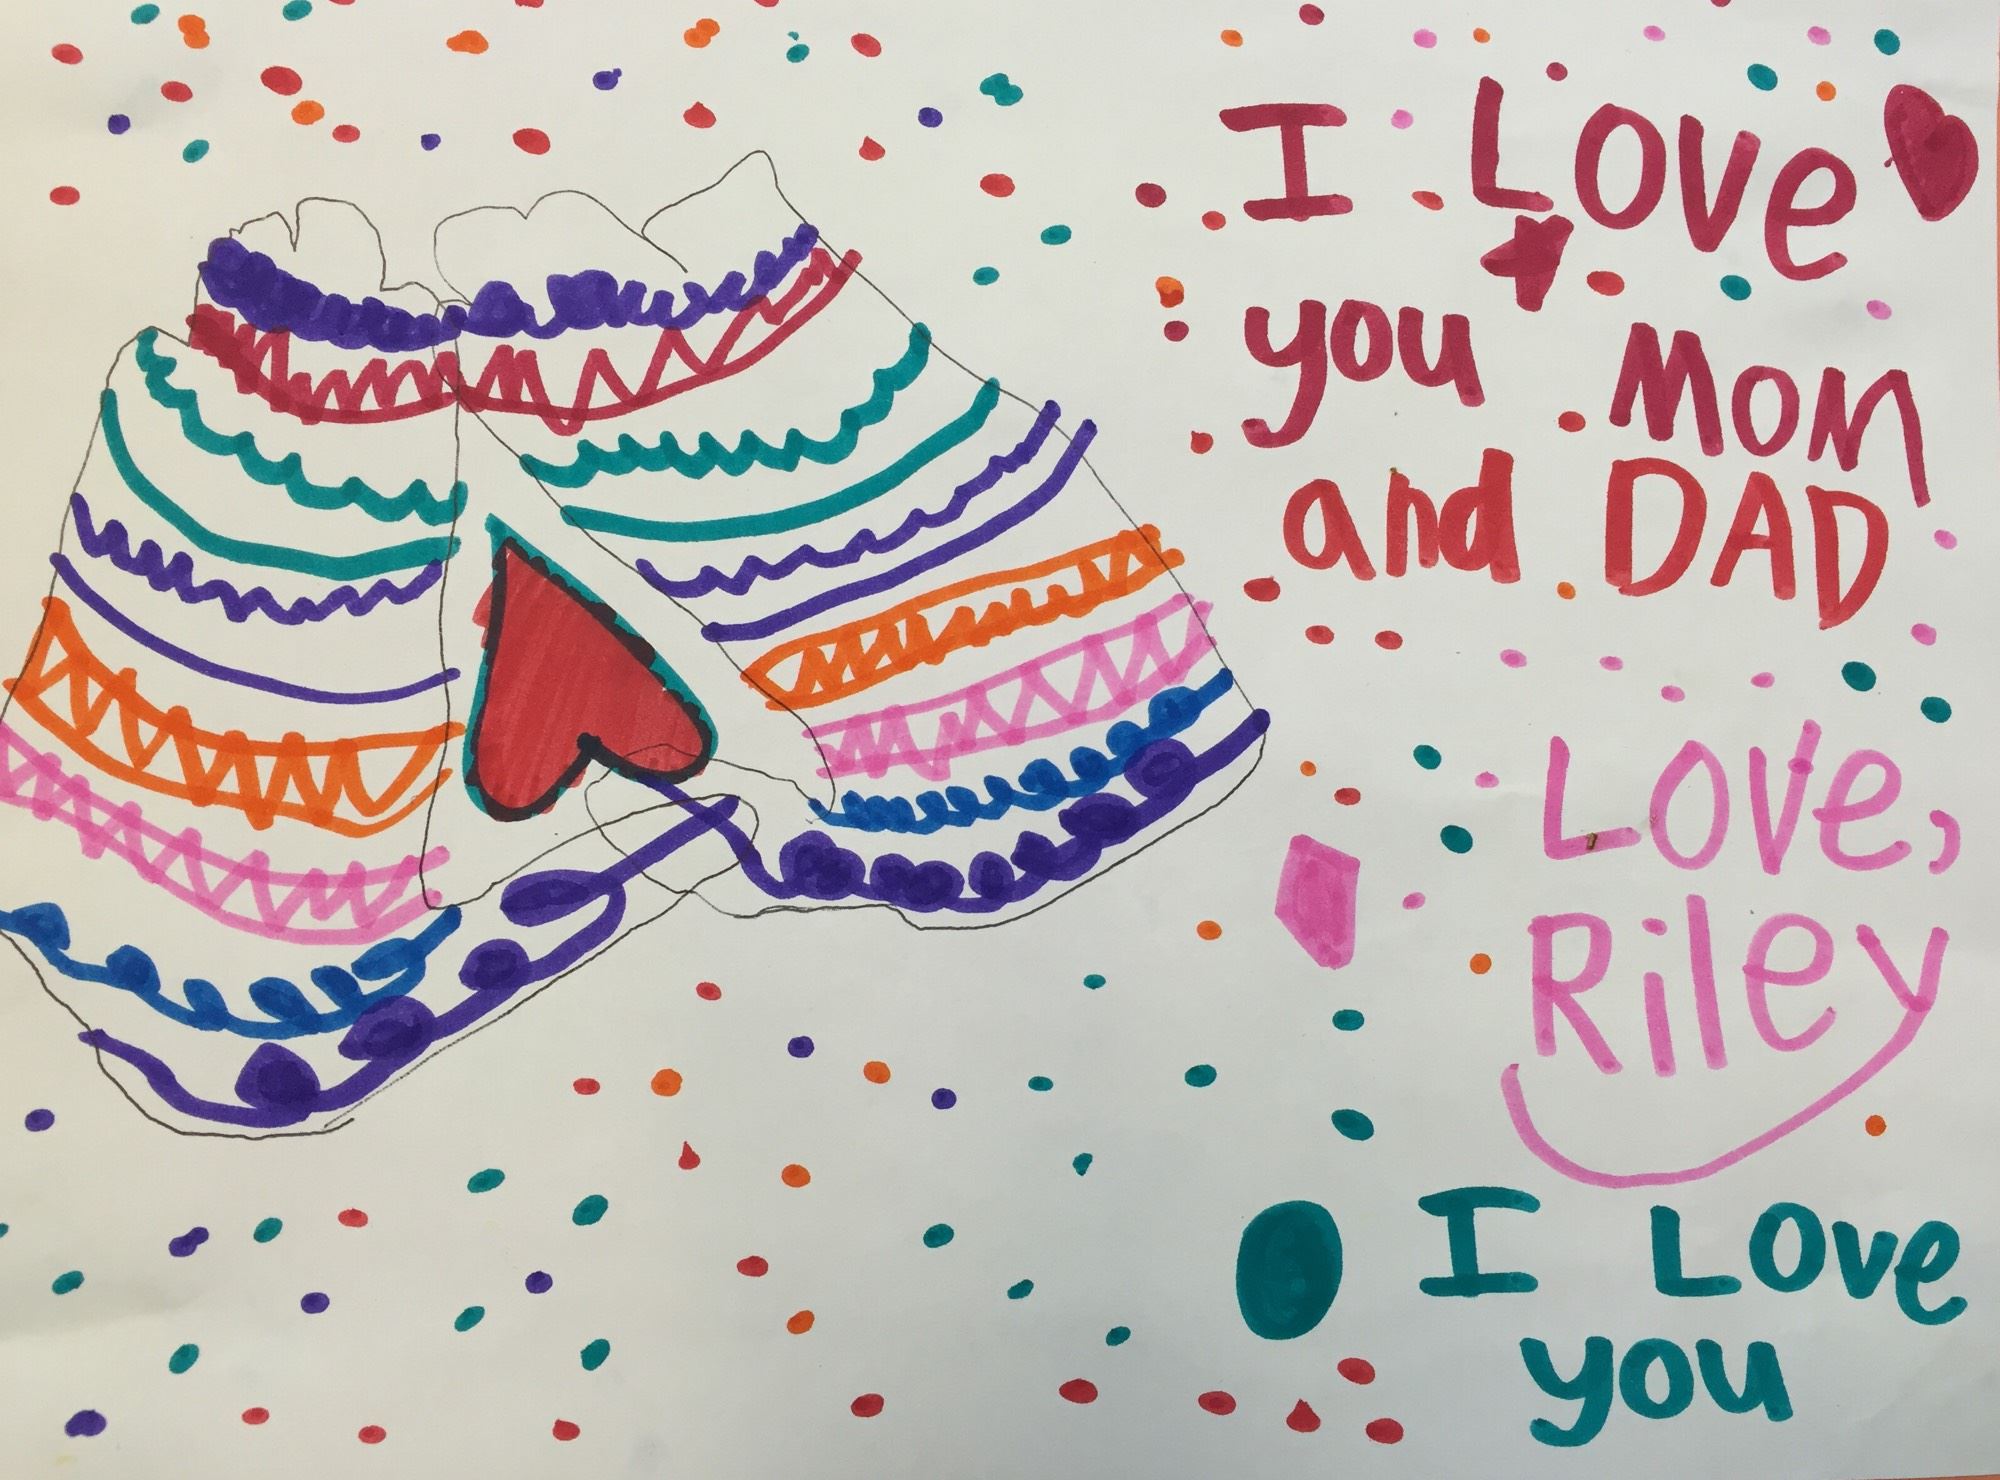 I Love
you Mom
and DAD
Love,
Riley
I Love
you